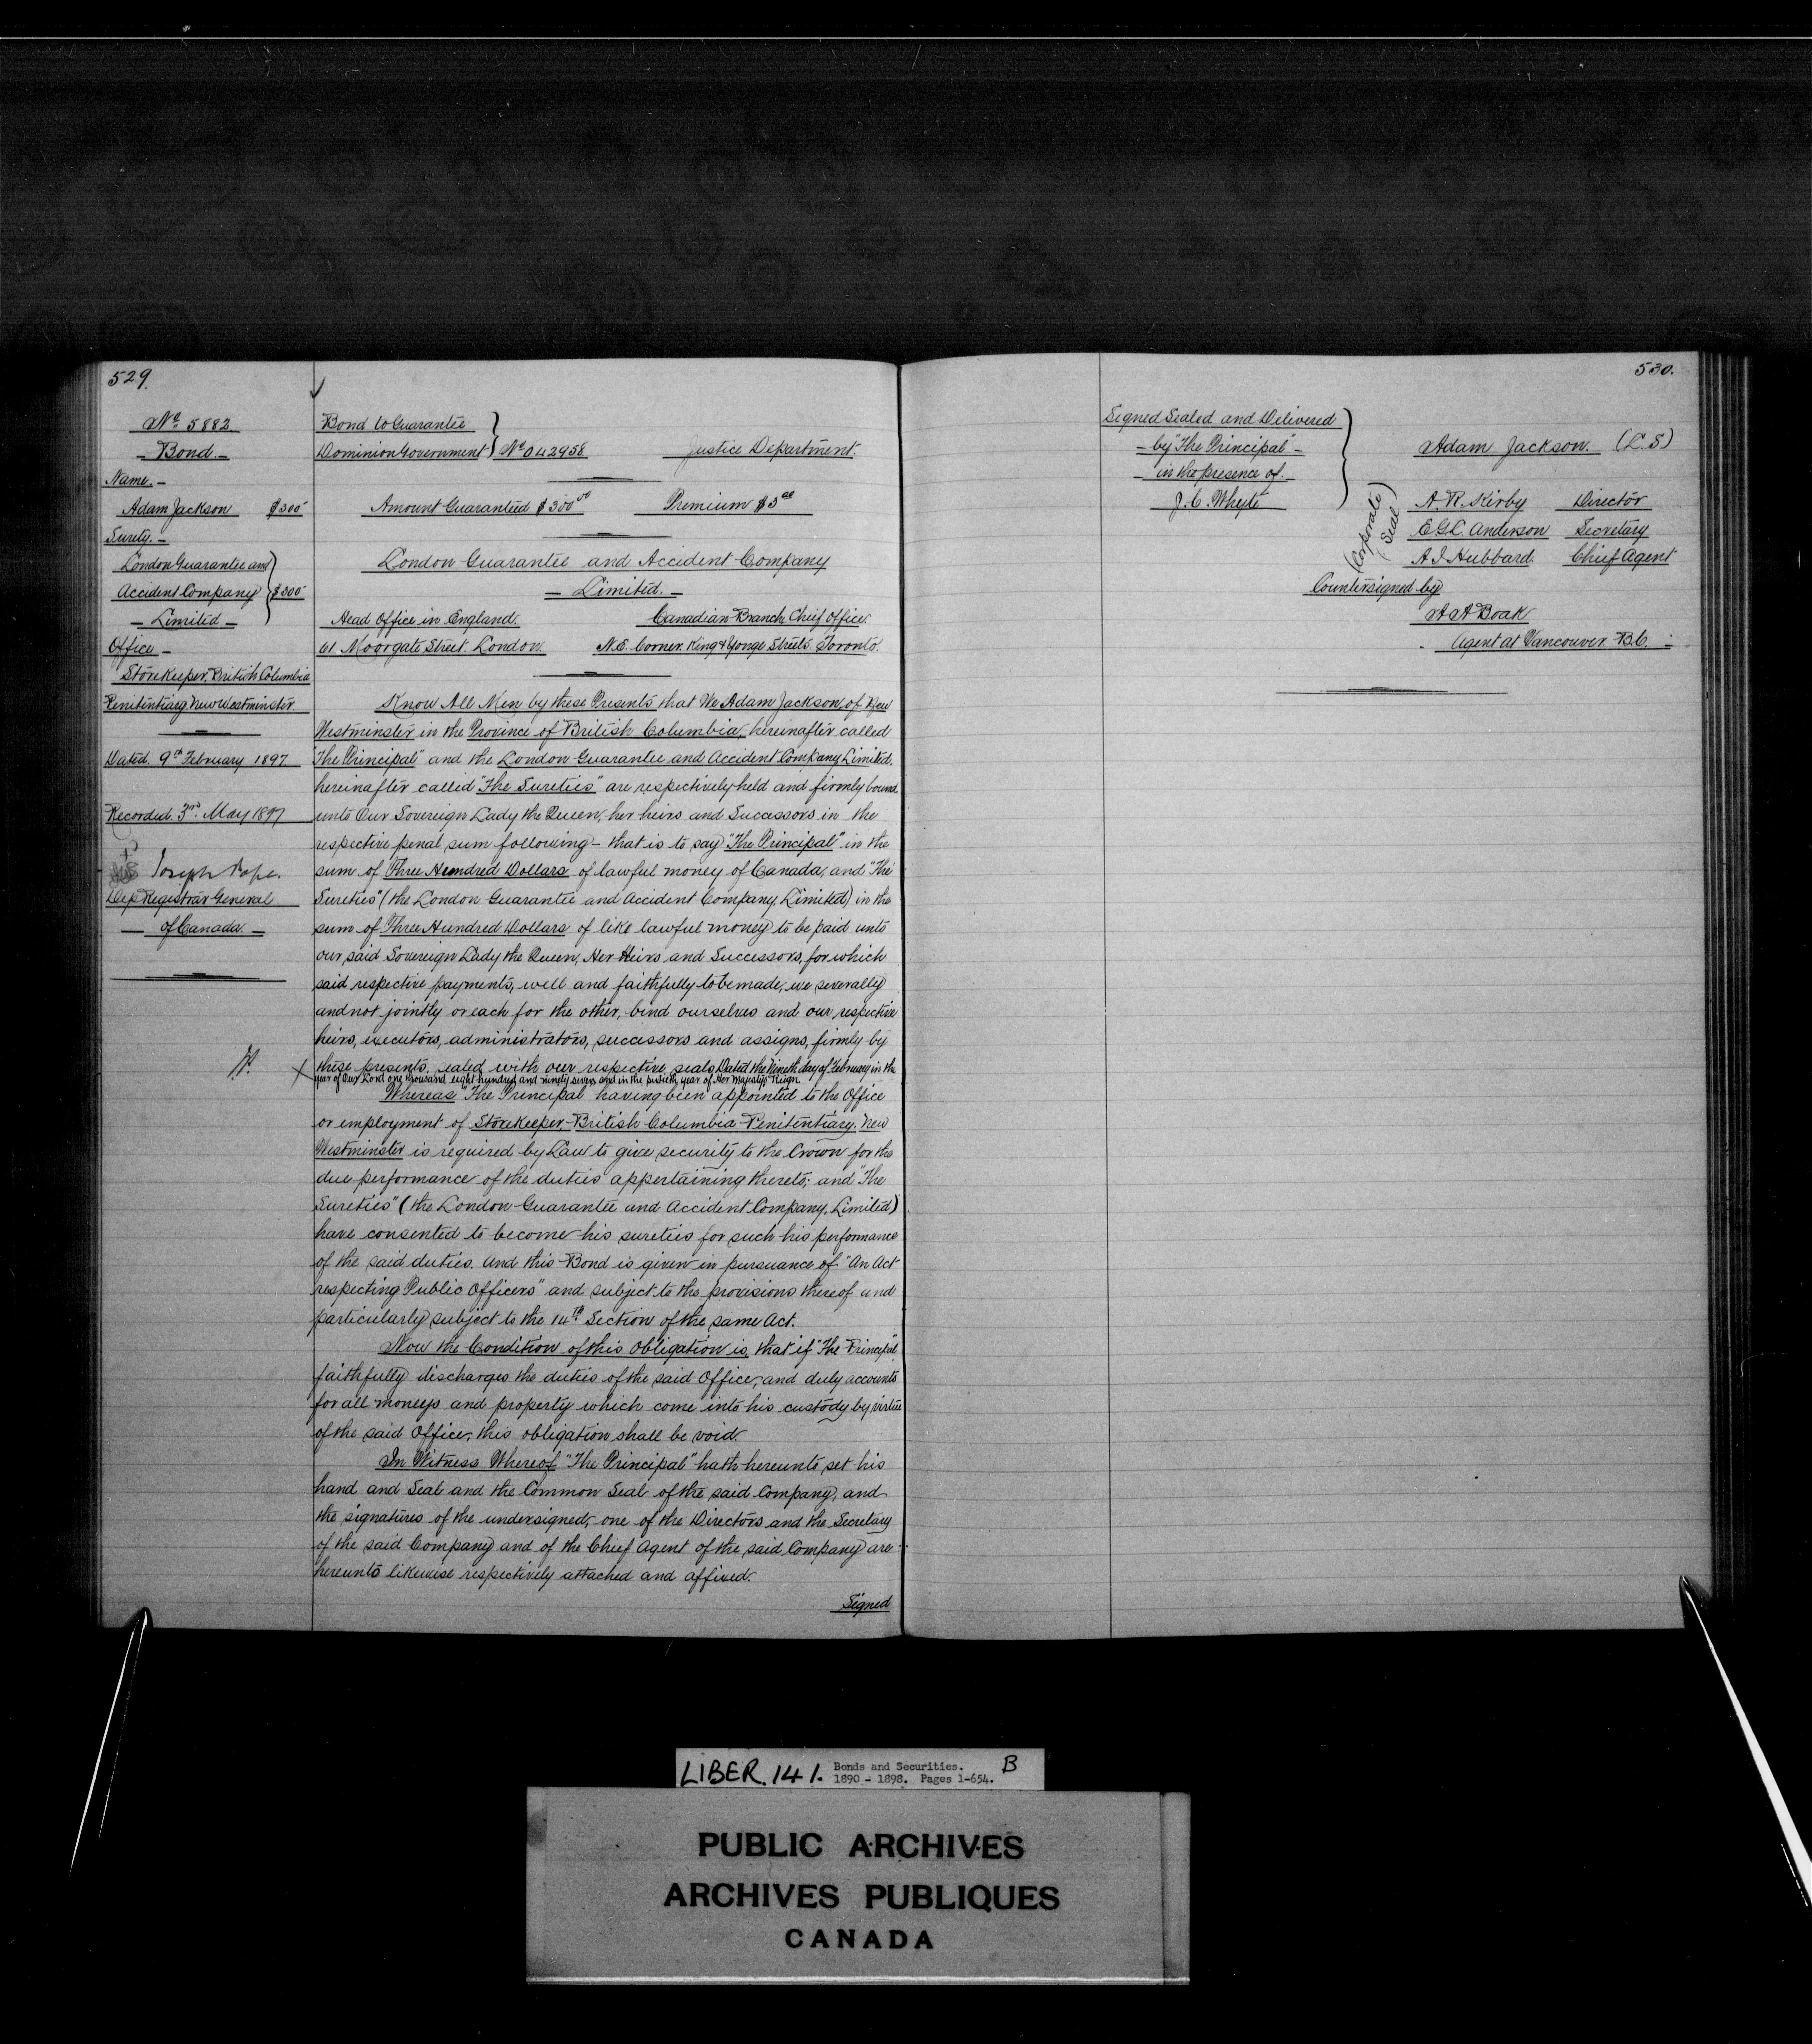 529.
Nº 5882.
Bond.
Name.
Adam Jackson $300
Surety.
London Guarantee and
Accident Company $300
Limited
Office
Storekeeper, British Columbia
Penitentiary, New Westminster
Dated. 9th February 1897.
Recorded. 3rd May 1897
Joseph Pope.
Dep Registrar General
of Canada.
Bond to Guarantee
Dominion Government Nº 042958 Justice Department.
Amount Guaranteed $300 00 Premium $3 00
London Guarantee and Accident Company
Limited.
Head Office in England. Canadian Branch, Chief Office.
61 Moorgate Street. London. N.E. Corner. King & Yonge Streets Toronto.
Know All Men by these Presents that We Adam Jackson, of New
Westminster in the Province of British Columbia, hereinafter called
"The Principal" and the London Guarantee and Accident Company Limited.
hereinafter called "The Sureties" are respectively held and firmly bound
unto Our Sovereign Lady the Queen, her heirs and Successors in the
respective penal sum following – that is to say "The Principal" in the
sum of Three Hundred Dollars of lawful money of Canada, and "The
Sureties" (the London Guarantee and Accident Company, Limited) in the
sum of Three Hundred Dollars of like lawful money to be paid unto
our said Sovereign Lady the Queen, Her Heirs and Successors, for which
said respective payments, well and faithfully to be made, we severally
and not jointly or each for the other, bind ourselves and our respective
heirs, executors, administrators, successors and assigns, firmly by
these presents, sealed with our respective seals. Dated the Ninth day of February in the
year of Our Lord one thousand eight hundred and ninety seven and in the sixtieth year of Her Majesty's Reign
Whereas "The Principal" having been appointed to the Office
or employment of Storekeeper British Columbia Penitentiary, New
Westminster is required by Law to give security to the Crown for the
due performance of the duties appertaining thereto; and "The
Sureties" (the London Guarantee and Accident Company, Limited)
have consented to become his sureties for such his performance
of the said duties. And this Bond is given in pursuance of "An Act
respecting Public Officers" and subject to the provisions thereof and
particularly subject to the 14th Section of the same Act.
Now the Condition of this Obligation is, that if "The Principal"
faithfully discharges the duties of the said Office, and duly accounts
for all moneys and property which come into his custody by virtue
of the said Office, this obligation shall be void.
In Witness Whereof "The Principal" hath hereunto set his
hand and Seal and the Common Seal of the said Company, and
the signatures of the undersigned, one of the Directors and the Secretary
of the said Company and of the Chief Agent of the said Company are
hereunto likewise respectively attached and affixed.
Signed
530.
Signed Sealed and Delivered
by "The Principal"
in the presence of
J. C. Whyte
Adam Jackson. (L.S)
(Corporate Seal)
A. R. Kirby Director
E G L. Anderson Secretary
A I Hubbard. Chief Agent
Countersigned by
A A Boak
Agent at Vancouver B.C.
LIBER. 141. Bonds and Securities. B
1890 - 1898. Pages 1-654.
PUBLIC ARCHIVES
ARCHIVES PUBLIQUES
CANADA